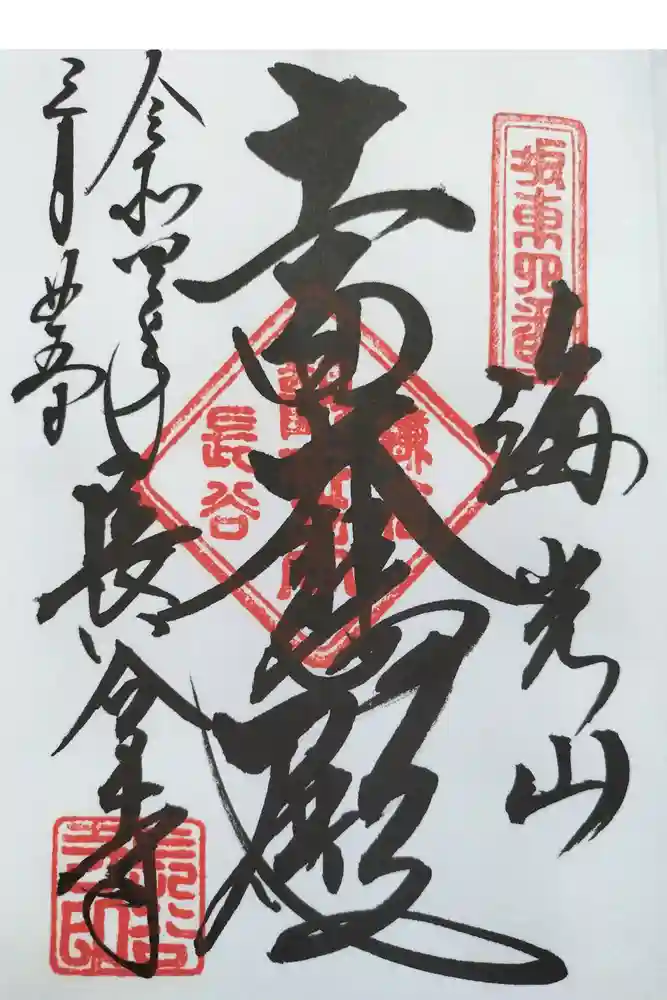 坂東四番
海光山
十一面大悲殿
鎌倉
長谷
令和四年
三月廿五日
長谷寺